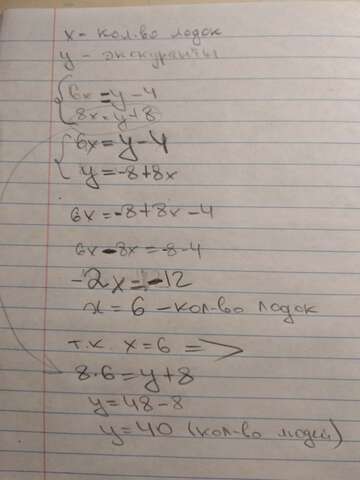 x - кол.во лодок
y - экскурсанты
{6x=y-4
8x=y+8
{6x=y-4
y=-8+8x
6x=-8+8x-4
6x-8x=-8-4
-2x=-12
x=6-кол-во лодок
т.к. x=6 =>
8·6=y+8
y=48-8
y=40 (кол-во людей)